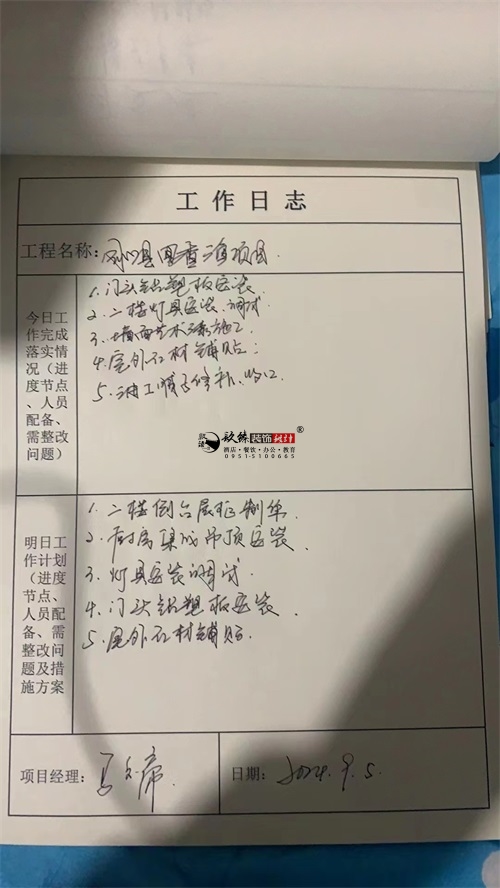 工作日志
工程名称:
今日工
作完成
落实情
况（进
度节点
、人员
配备、
需整改
问题）
1. 门头铝塑板安装
2. 二楼灯具安装、调试
3. 墙面艺术漆施工
4. 屋外石材铺贴;
5. 油工顺子修补、收口
玖臻装饰设计®
酒店·餐饮·办公·教育
0951-5100665
明日工
作计划
（进度
节点、
人员配
备、需
整改问
题及措
施方案
1. 二楼倒台展柜制作
2. 厨房集成吊顶安装
3. 灯具安装调试
4. 门头铝塑板安装
5. 屋外石材铺贴.
项目经理:
日期: 2024.9.5.